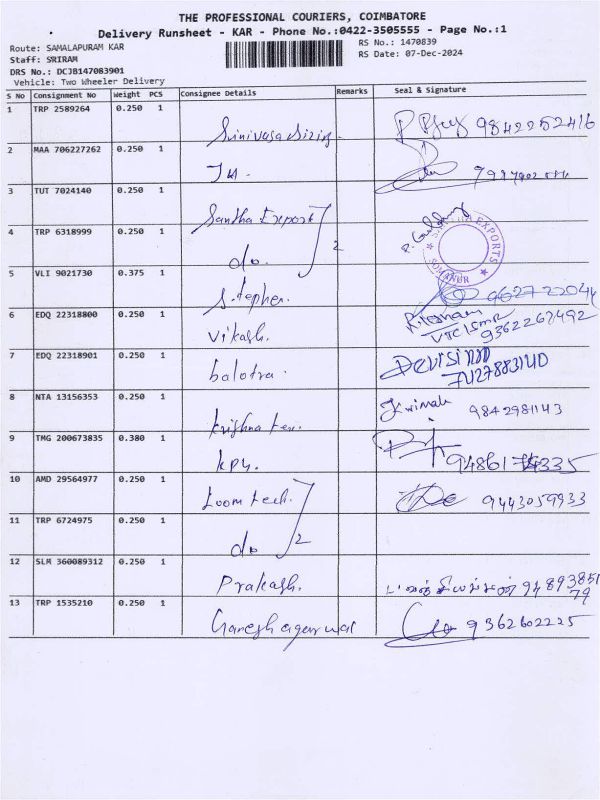 THE PROFESSIONAL COURIERS, COIMBATORE
Delivery Runsheet - KAR - Phone No.:0422-3505555 - Page No.:1
Route: SAMALAPURAM KAR
RS No.: 1470839
Staff: SRIRAM
RS Date: 07-Dec-2024
DRS No.: DCJB147083901
Vehicle: Two Wheeler Delivery
S No Consignment No Weight PCS Consignee Details Remarks Seal & Signature
1 TRP 2589264 0.250 1 9842252416
2 MAA 706227262 0.250 1
3 TUT 7024140 0.250 1 Santha Export
SANTHA EXPORTS
SOMANUR
4 TRP 6318999 0.250 1 do. 2
5 VLI 9021730 0.375 1 Stephen.
6 EDQ 22318800 0.250 1 Vikash. 9362262492
7 EDQ 22318901 0.250 1 balotra.
8 NTA 13156353 0.250 1 krishna tex. 9842981143
9 TMG 200673835 0.380 1 kpy.
10 AMD 29564977 0.250 1 Loom tech. 9443059933
11 TRP 6724975 0.250 1 do 2
12 SLM 360089312 0.250 1 Prakash. 9489385179
13 TRP 1535210 0.250 1 Ganesh agarwal 9362602225